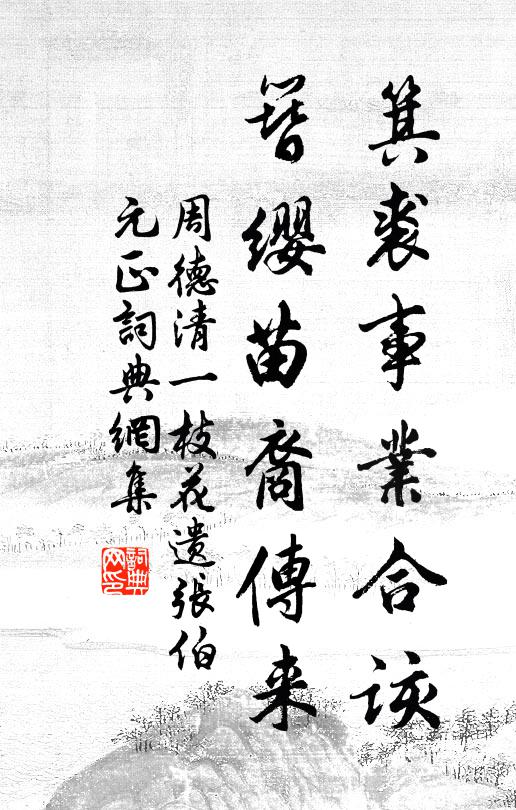 箕裘事業合該
簪纓苗裔傳来
周德清一枝花遗張伯
元正詞典網集
詞典网印